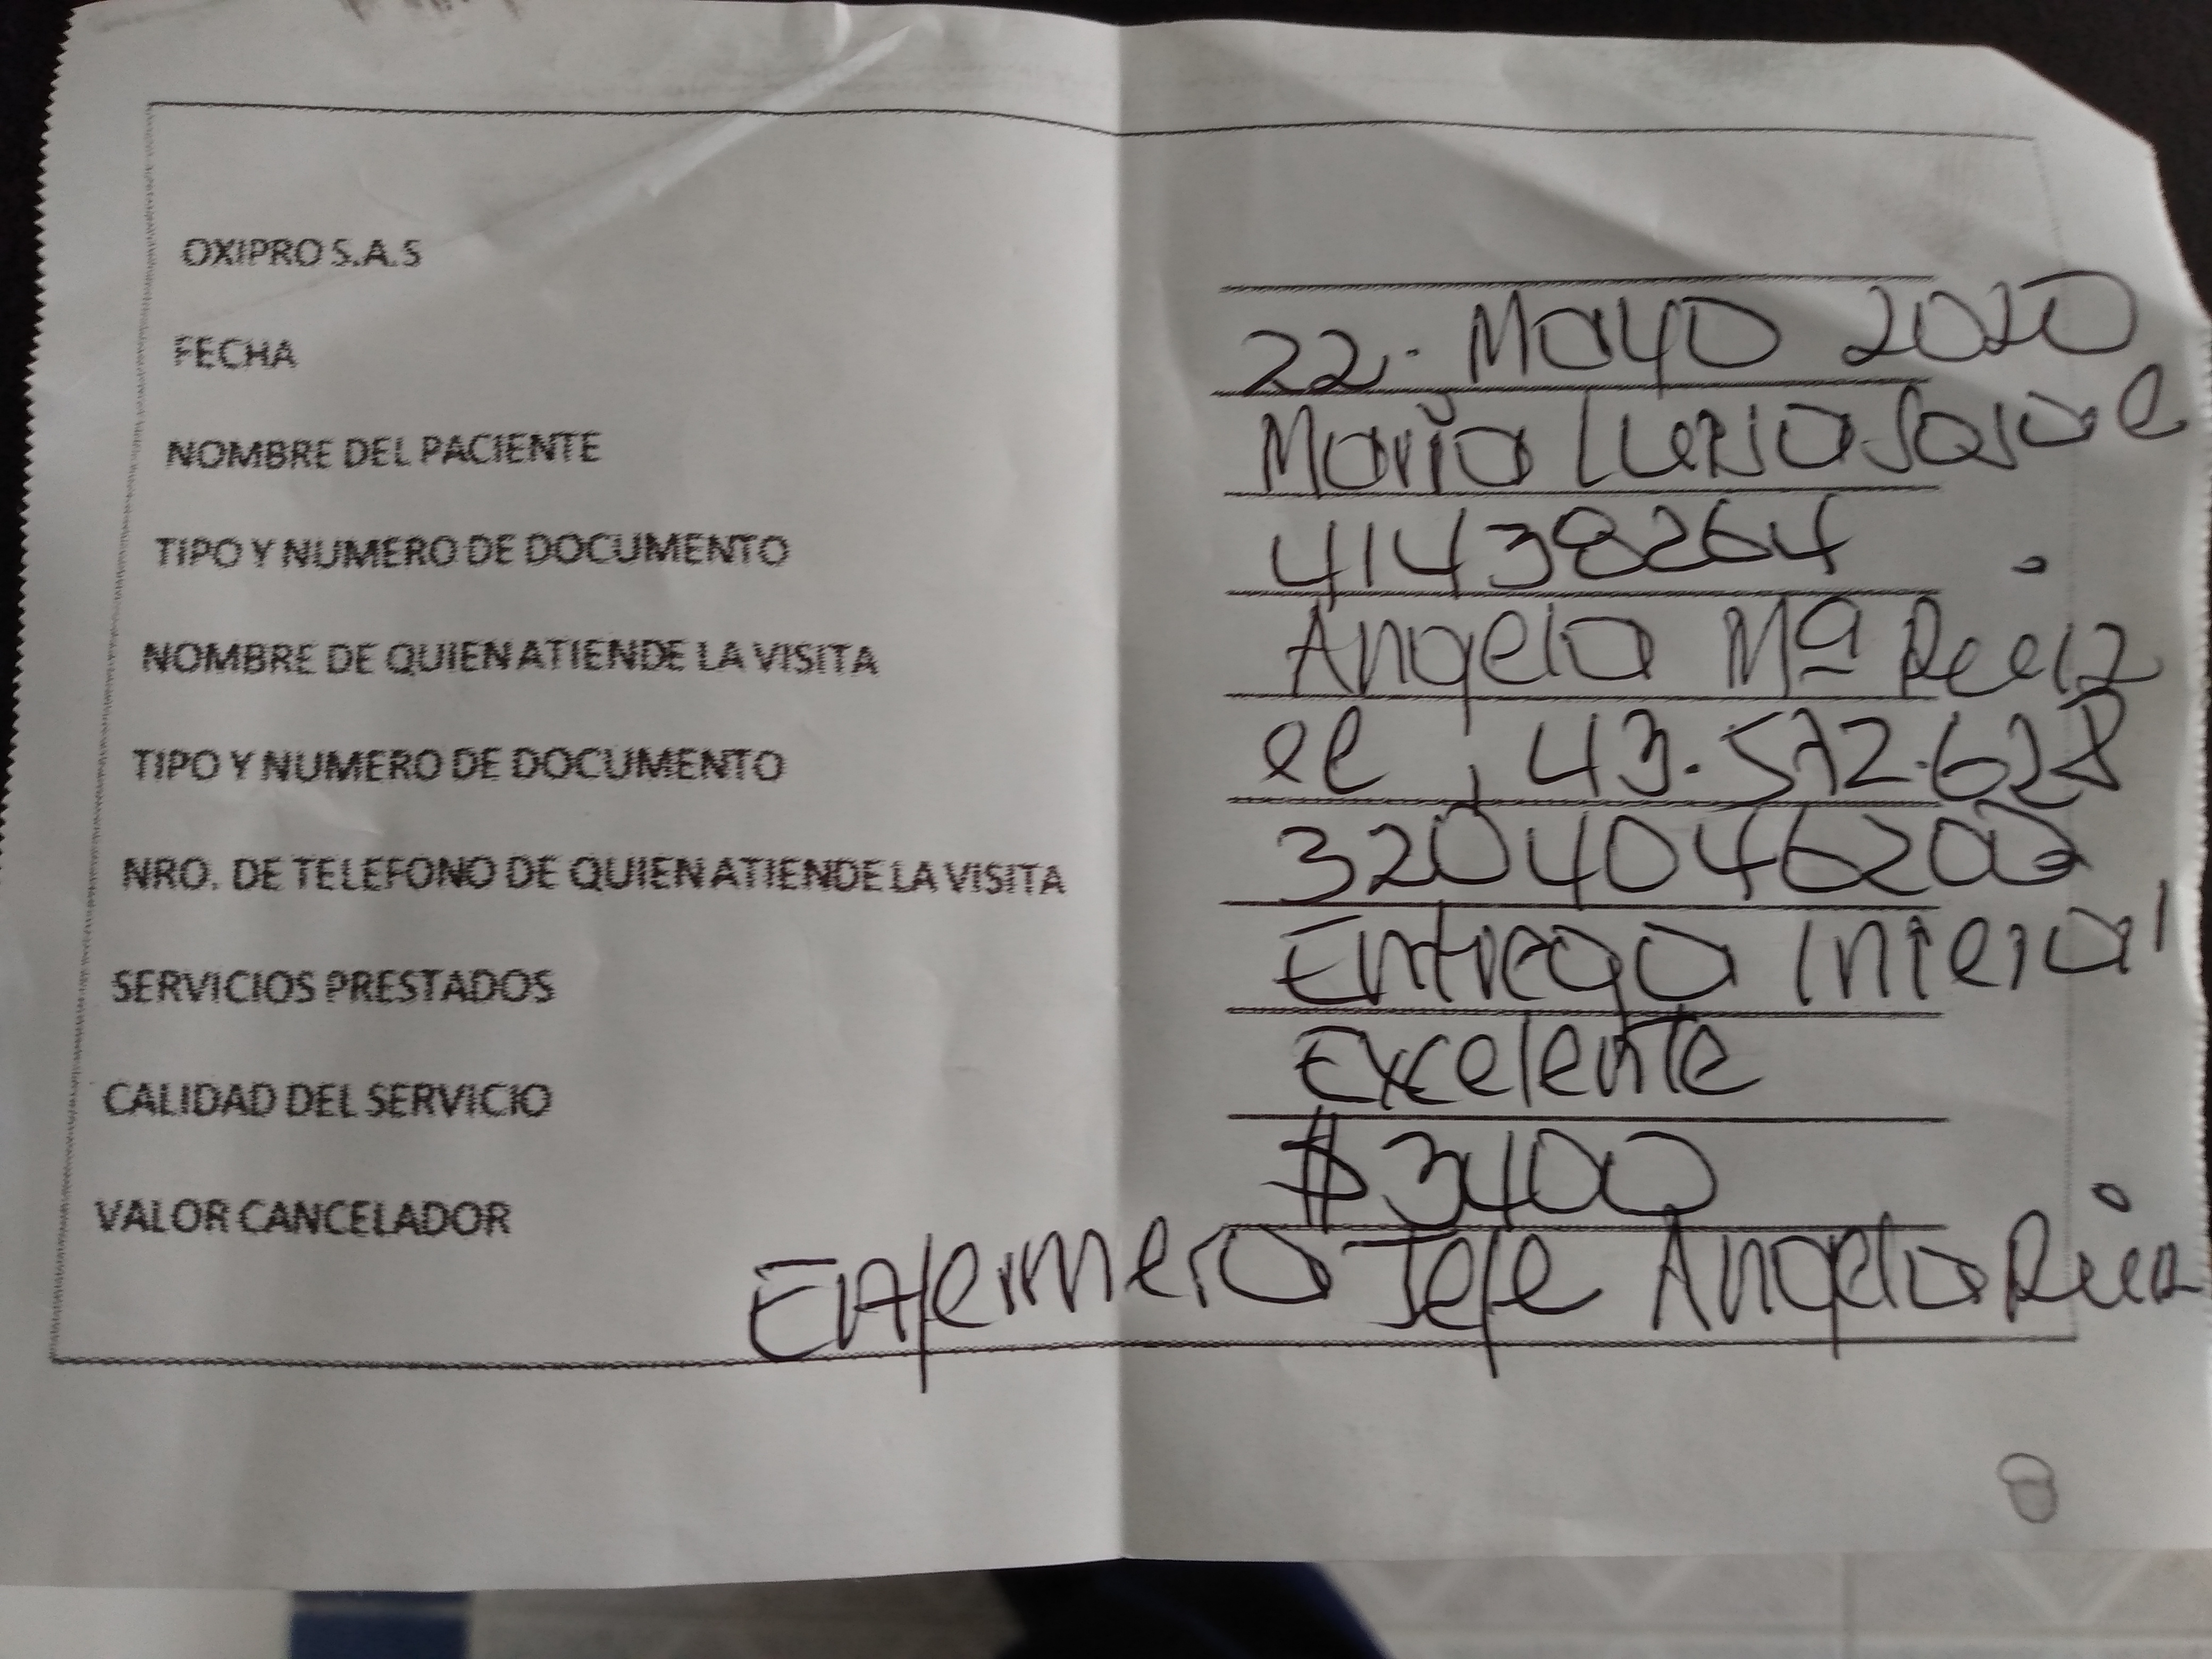 OXIPRO S.A.S
FECHA 22. Mayo 2020
NOMBRE DEL PACIENTE Maria
TIPO Y NUMERO DE DOCUMENTO 41438264
NOMBRE DE QUIEN ATIENDE LA VISITA Angela Mª Ruiz
TIPO Y NUMERO DE DOCUMENTO cc, 43.572.628
NRO. DE TELEFONO DE QUIEN ATIENDE LA VISITA
SERVICIOS PRESTADOS Entrega Inicial
CALIDAD DEL SERVICIO Excelente
VALOR CANCELADOR $3400
Enfermera Jefe Angela Ruiz